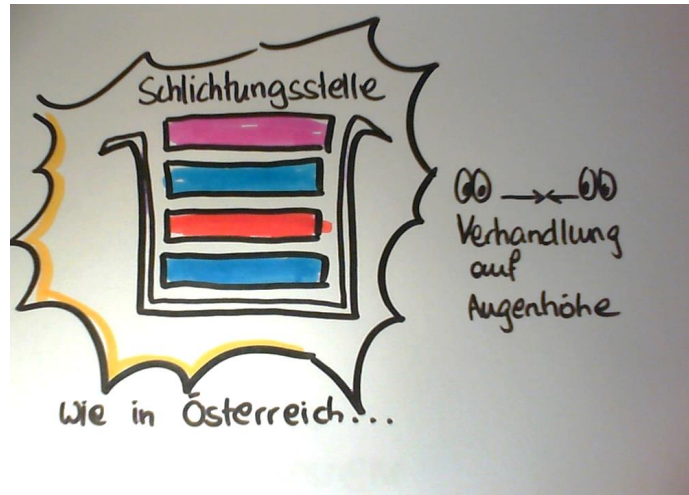 Schlichtungsstelle
Verhandlung
auf
Augenhöhe
Wie in Österreich...